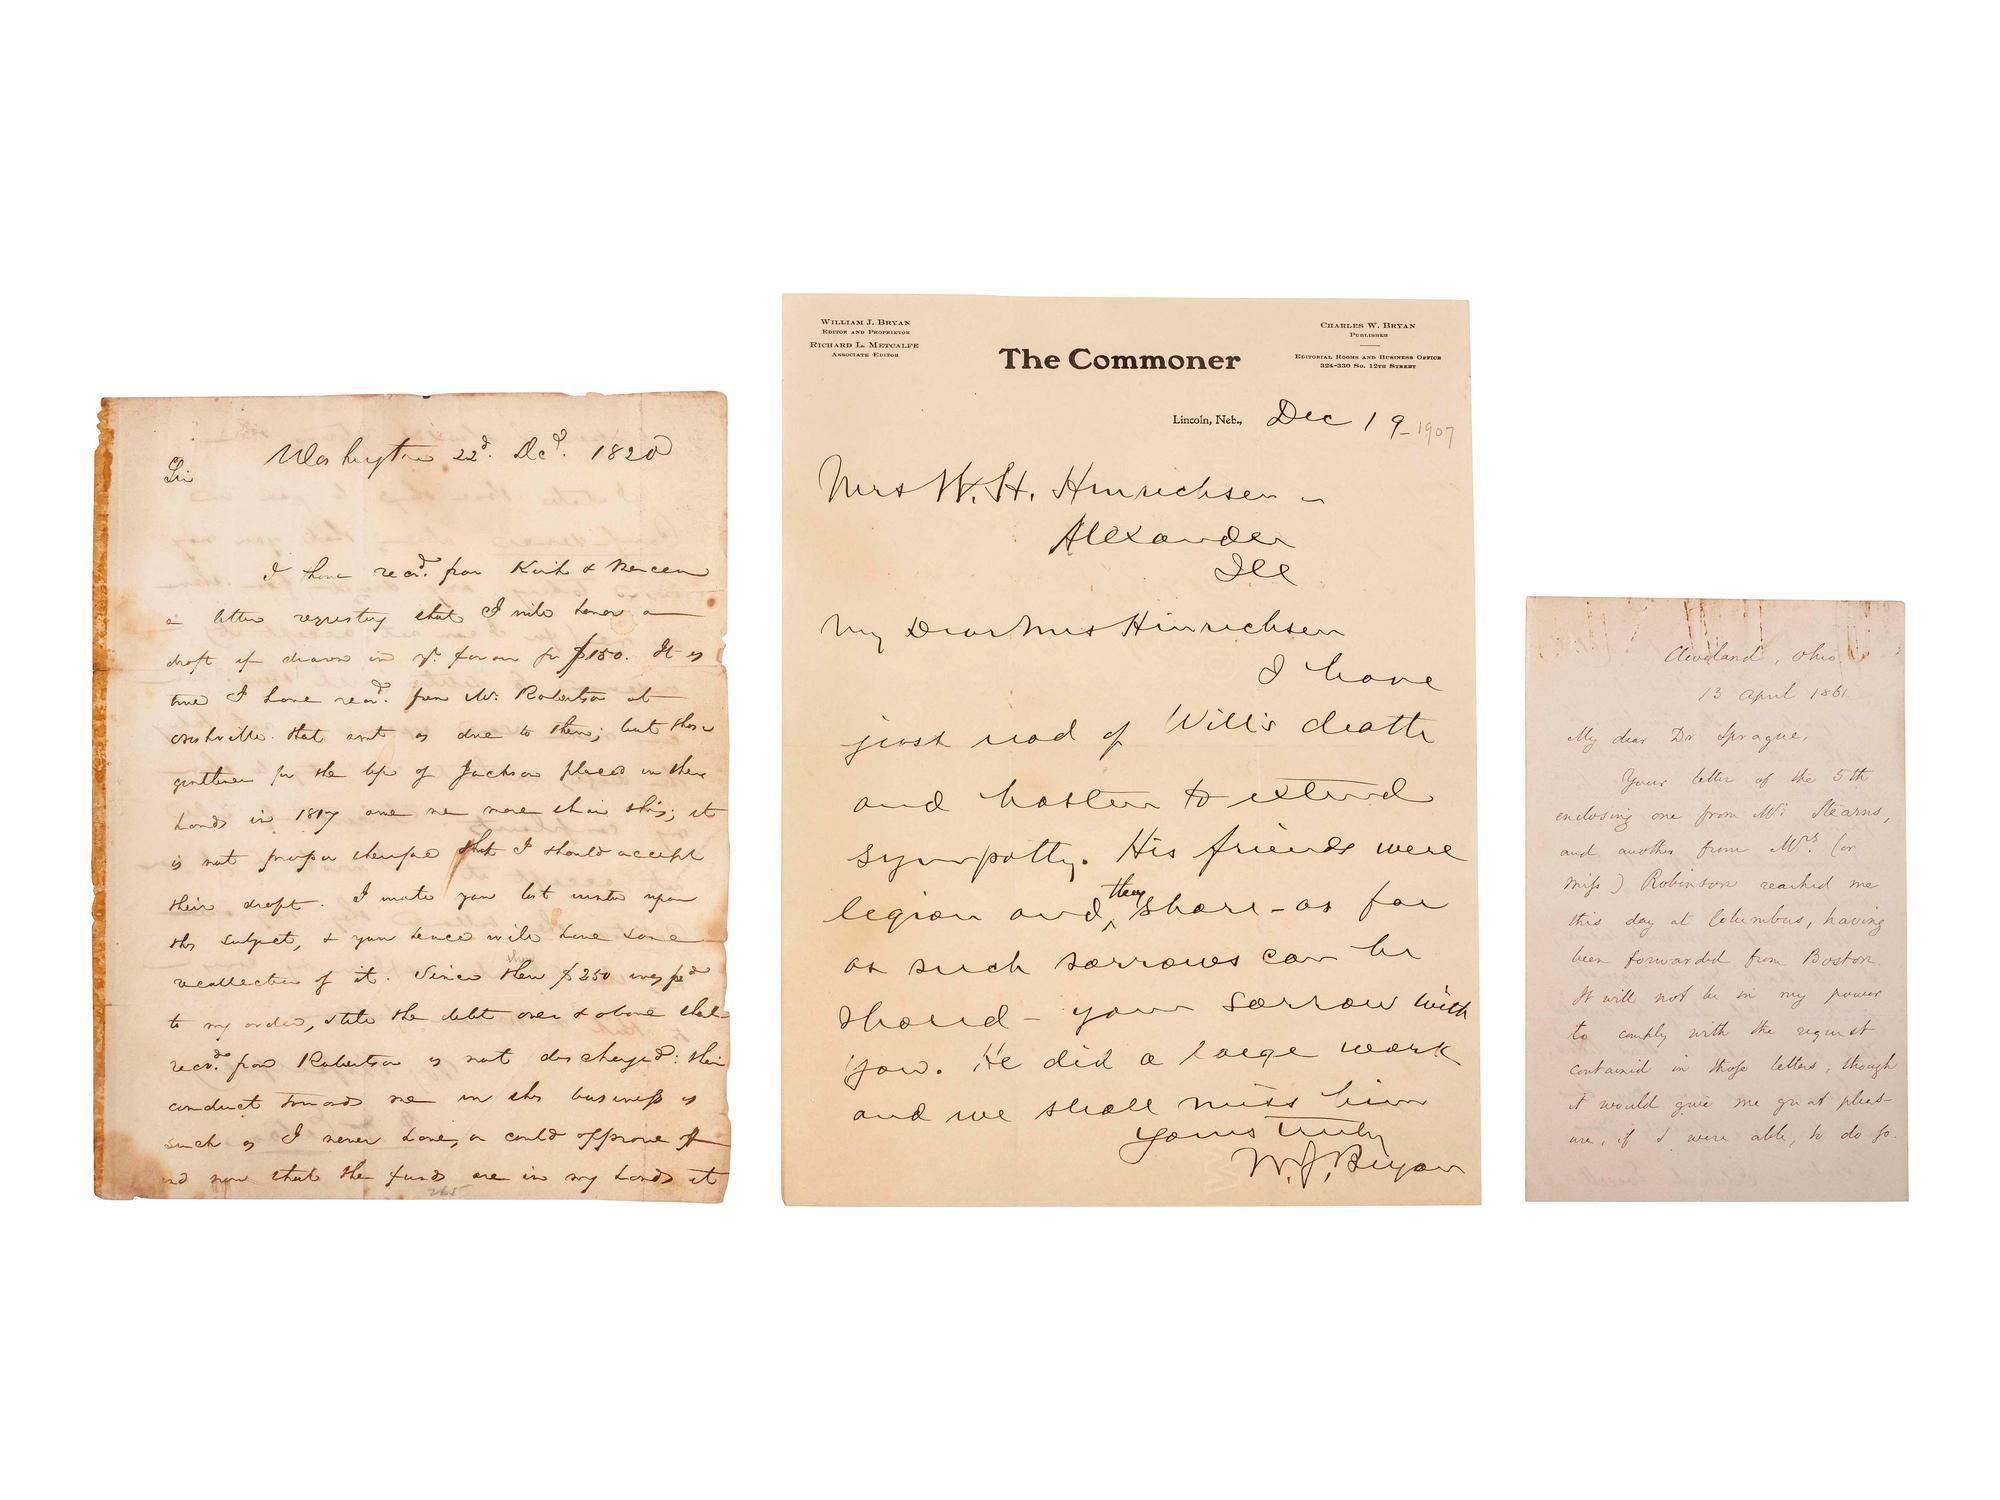 Washington 22d. Decr. 1820
Sir
I have recd. from
a letter requesting that I will honor a
draft if drawn in yr. favour for $150. It is
true I have recd. from Mr. Robertson at
that amt as due to them; but those
gentlemen for the of Jackson placed in their
hands in 1817 owe me more than this; it
is not proper therefore that I should accept
their draft. I wrote you last winter upon
this subject, & you hence will have some
recollection of it. Since then $250 was pd
to my order, still the debt over & above that
recd. from Robertson is not discharged: their
conduct towards me in this business is
such as I never have, or could approve of
and now that the funds are in my hands it
265
William J. Bryan
Editor and Proprietor
Richard L. Metcalfe
Associate Editor
The Commoner
Charles W. Bryan
Publisher
Editorial Rooms and Business Office
324-330 So. 12th Street
Lincoln, Neb., Dec 19 1907
Mrs W. H. Hinrichsen
Alexander
Ill
My Dear Mrs Hinrichsen
I have
just read of Will's death
and hasten to extend
sympathy. His friends were
legion and they share - as far
as such sorrows can be
shared - your sorrow with
you. He did a large work
and we shall miss him
Yours truly
W. J. Bryan
Cleveland, Ohio
13 April 1861
My dear Dr Sprague,
Your letter of the 5th
enclosing one from Mr Stearns,
and another from Mrs. (or
Miss) Robinson reached me
this day at Columbus, having
been forwarded from Boston.
It will not be in my power
to comply with the request
contained in those letters, though
it would give me great pleas-
ure, if I were able, to do so.